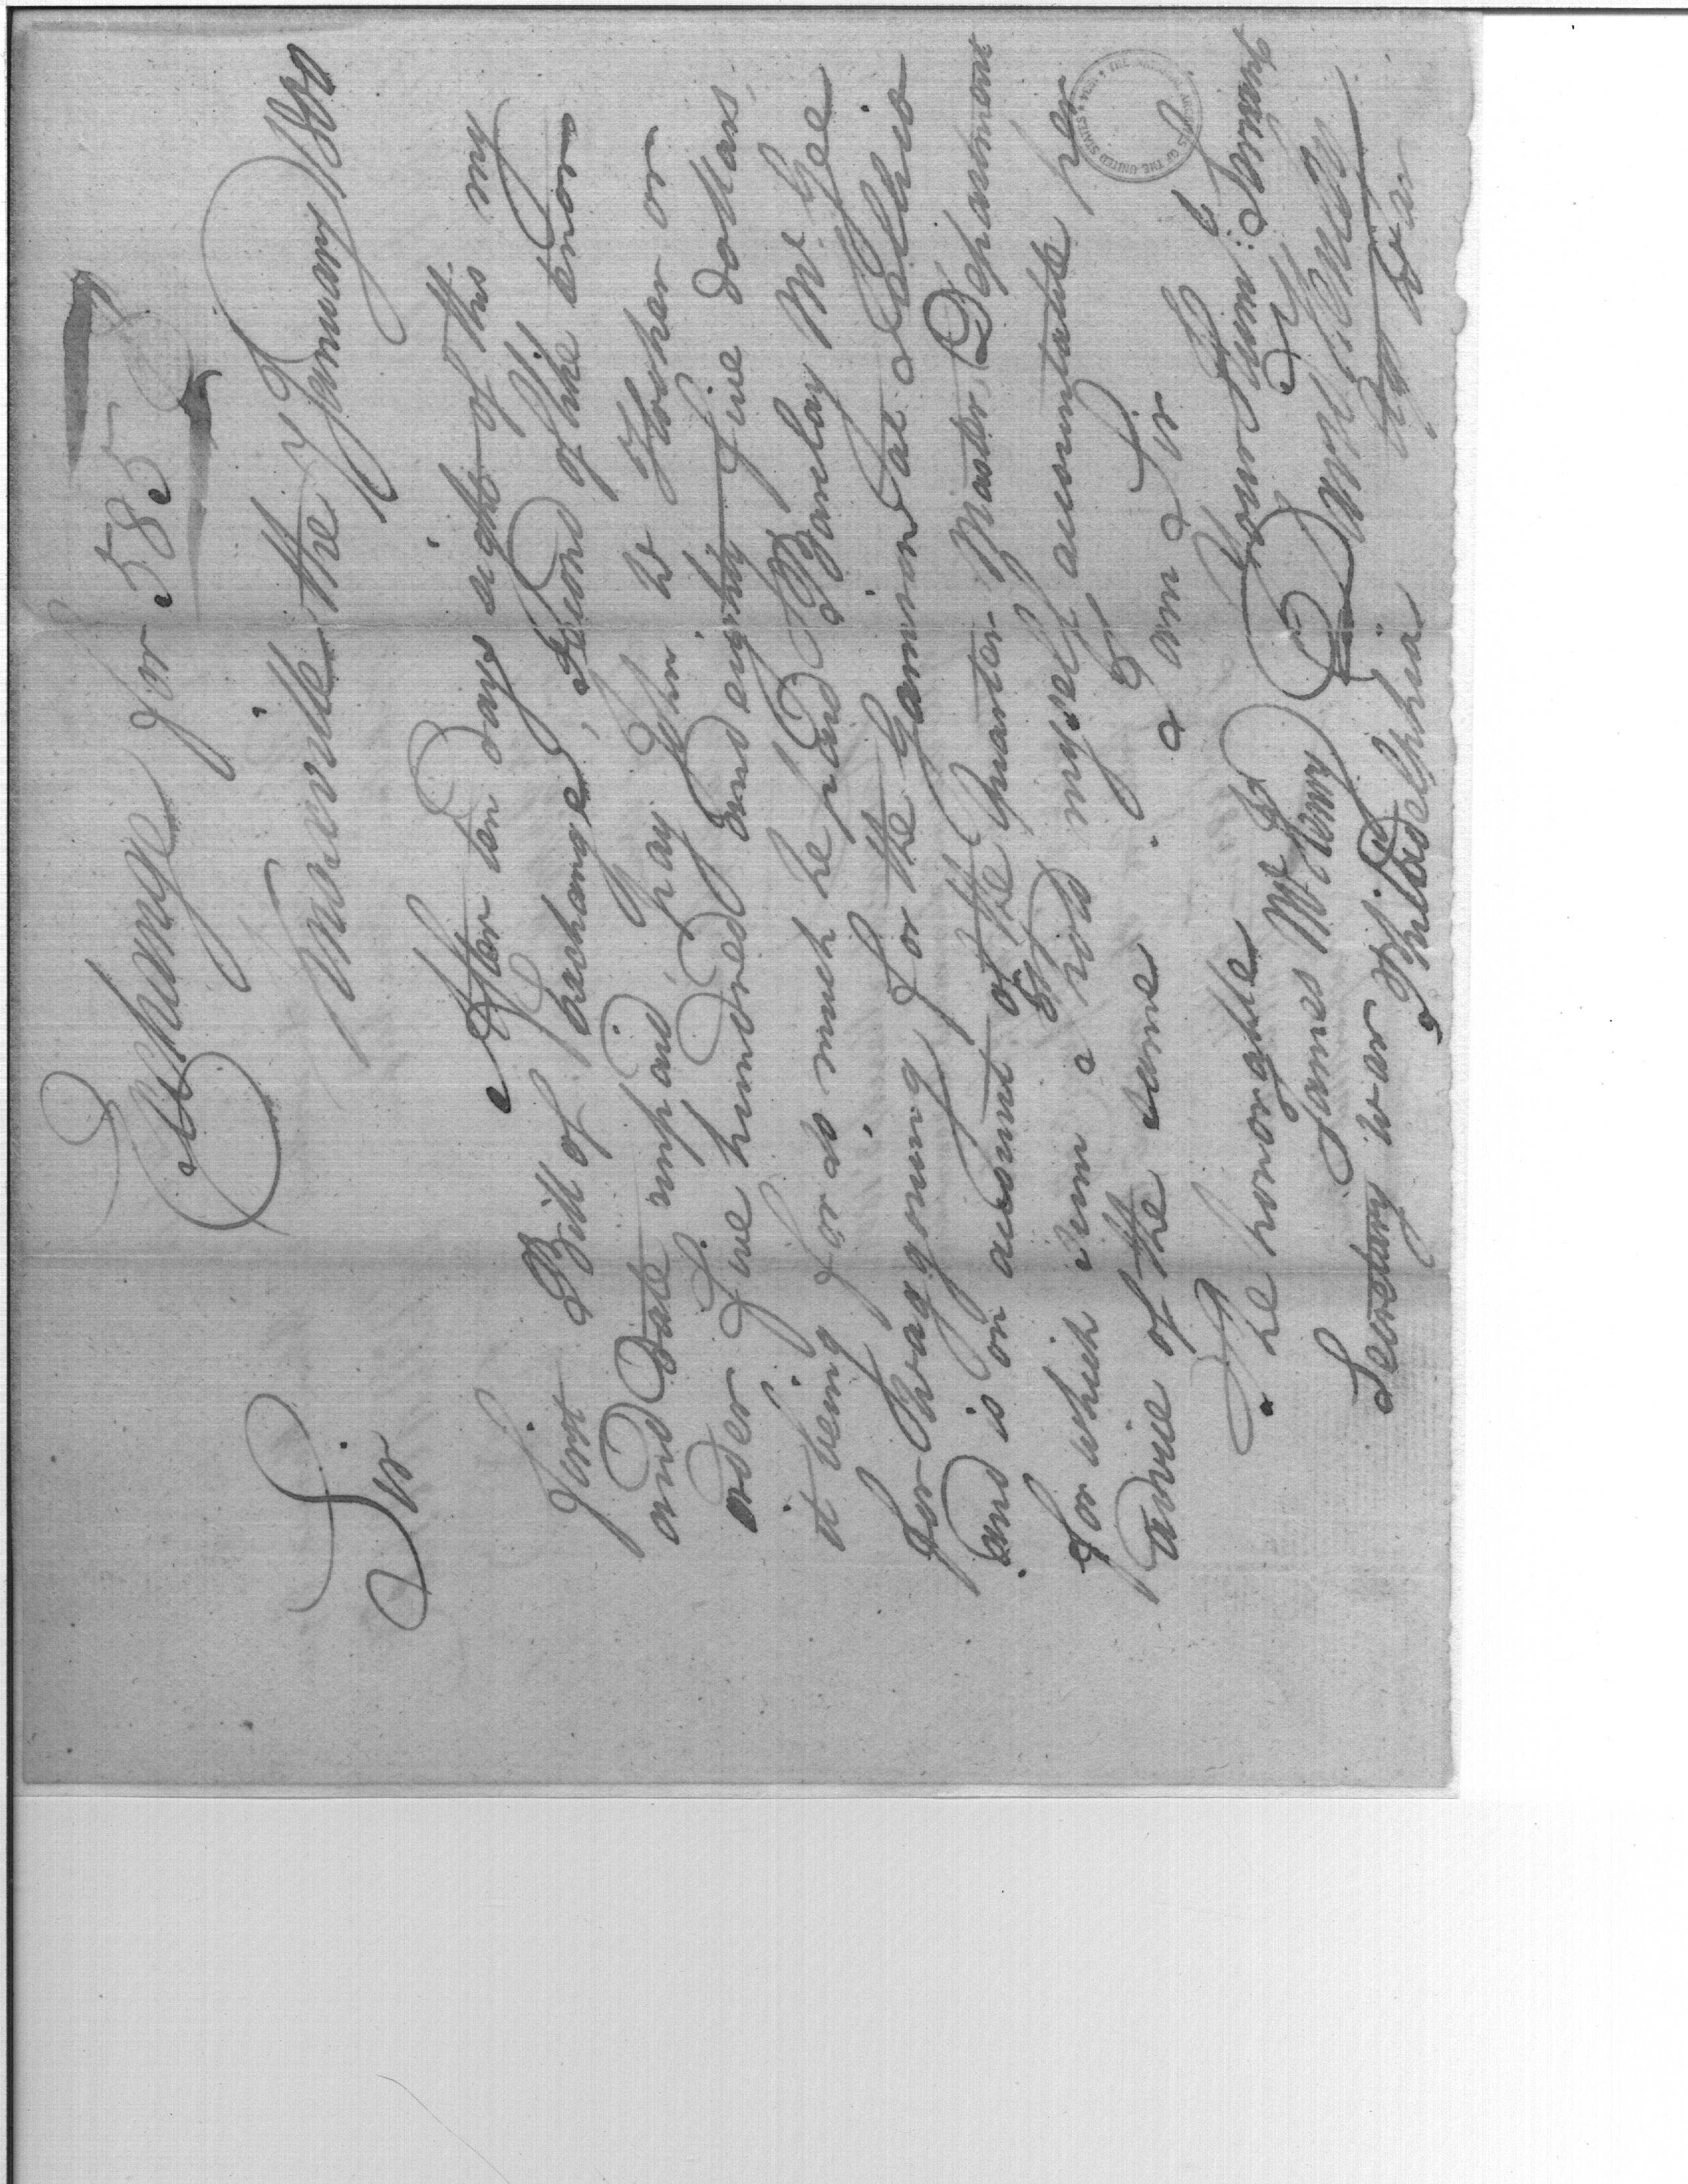 Exchange for 585
Knoxville the January 1800
Sir
After ten days sight of this my
first Bill of Exchange, Second of like tenor
and date unpaid, pay John W Hooker or
order five hundred and eighty five dollars,
it being for so much he paid Barclay McGee
for Waggoning for the Garrison at Tellico
and is on account of the Quarter Master Department
for which sum I hold myself accountable per
advice of the same. I am Sir
The honorable Your Hum: Servant
James McHenry David Henley
Secretary War Philadelphia Ag War
THE NATIONAL ARCHIVES OF THE UNITED STATES